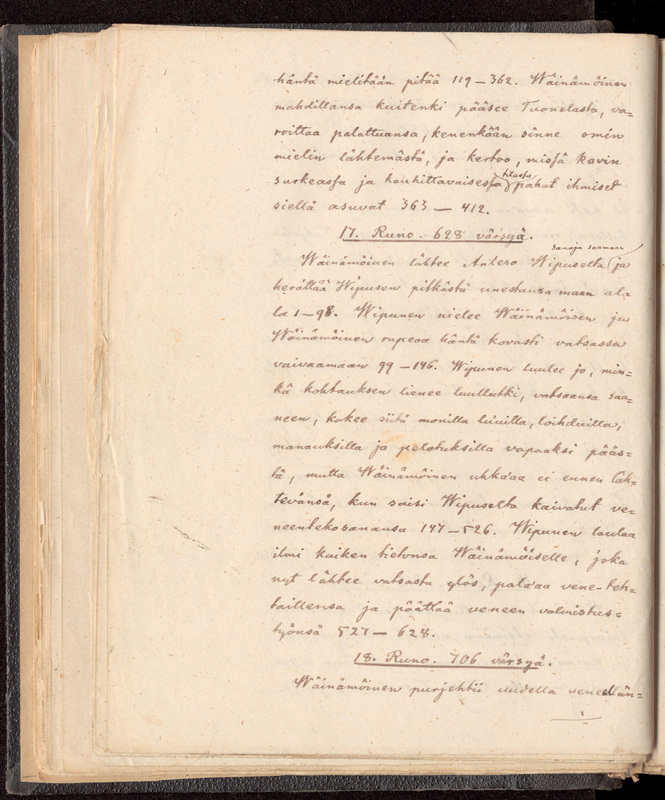 häntä mielitään pitää 119–362. Wäinämöinen
mahdillansa kuitenki pääsee Tuonelasta, va=
roittaa palattuansa, kenenkään sinne omin
mielin lähtemästä, ja kertoo, missä kovin
surkeassa ja kauhittavaisessa tilassa pahat ihmiset
siellä asuvat 363 — 412.
17. Runo. 628 värsyä.
Wäinämöinen lähtee Antero Wipuselta sanoja saamaan ja
herättää Wipusen pitkästä unestansa maan al=
la 1–98. Wipunen nielee Wäinämöisen ja
Wäinämöinen rupeaa häntä kovasti vatsassa
vaivaamaan 99–146. Wipunen luulee jo, min=
kä kohtauksen lienee luullutki, vatsaansa saa=
neen, kokee siitä monilla luvuilla, loihduilla,
manauksilla ja pelotuksilla vapaaksi pääs=
tä, mutta Wäinämöinen uhkaa ei ennen läh=
tevänsä, kun saisi Wipuselta kaivatut ve=
neentekosanansa 147–526. Wipunen laulaa
ilmi kaiken tietonsa Wäinämöiselle, joka
nyt lähtee vatsasta ylös, pala'aa vene-teh=
taillensa ja päättää veneen valmistus=
työnsä 527 — 628.
18. Runo. 706 värsyä.
Wäinämöinen purjehtii uudella veneellän=